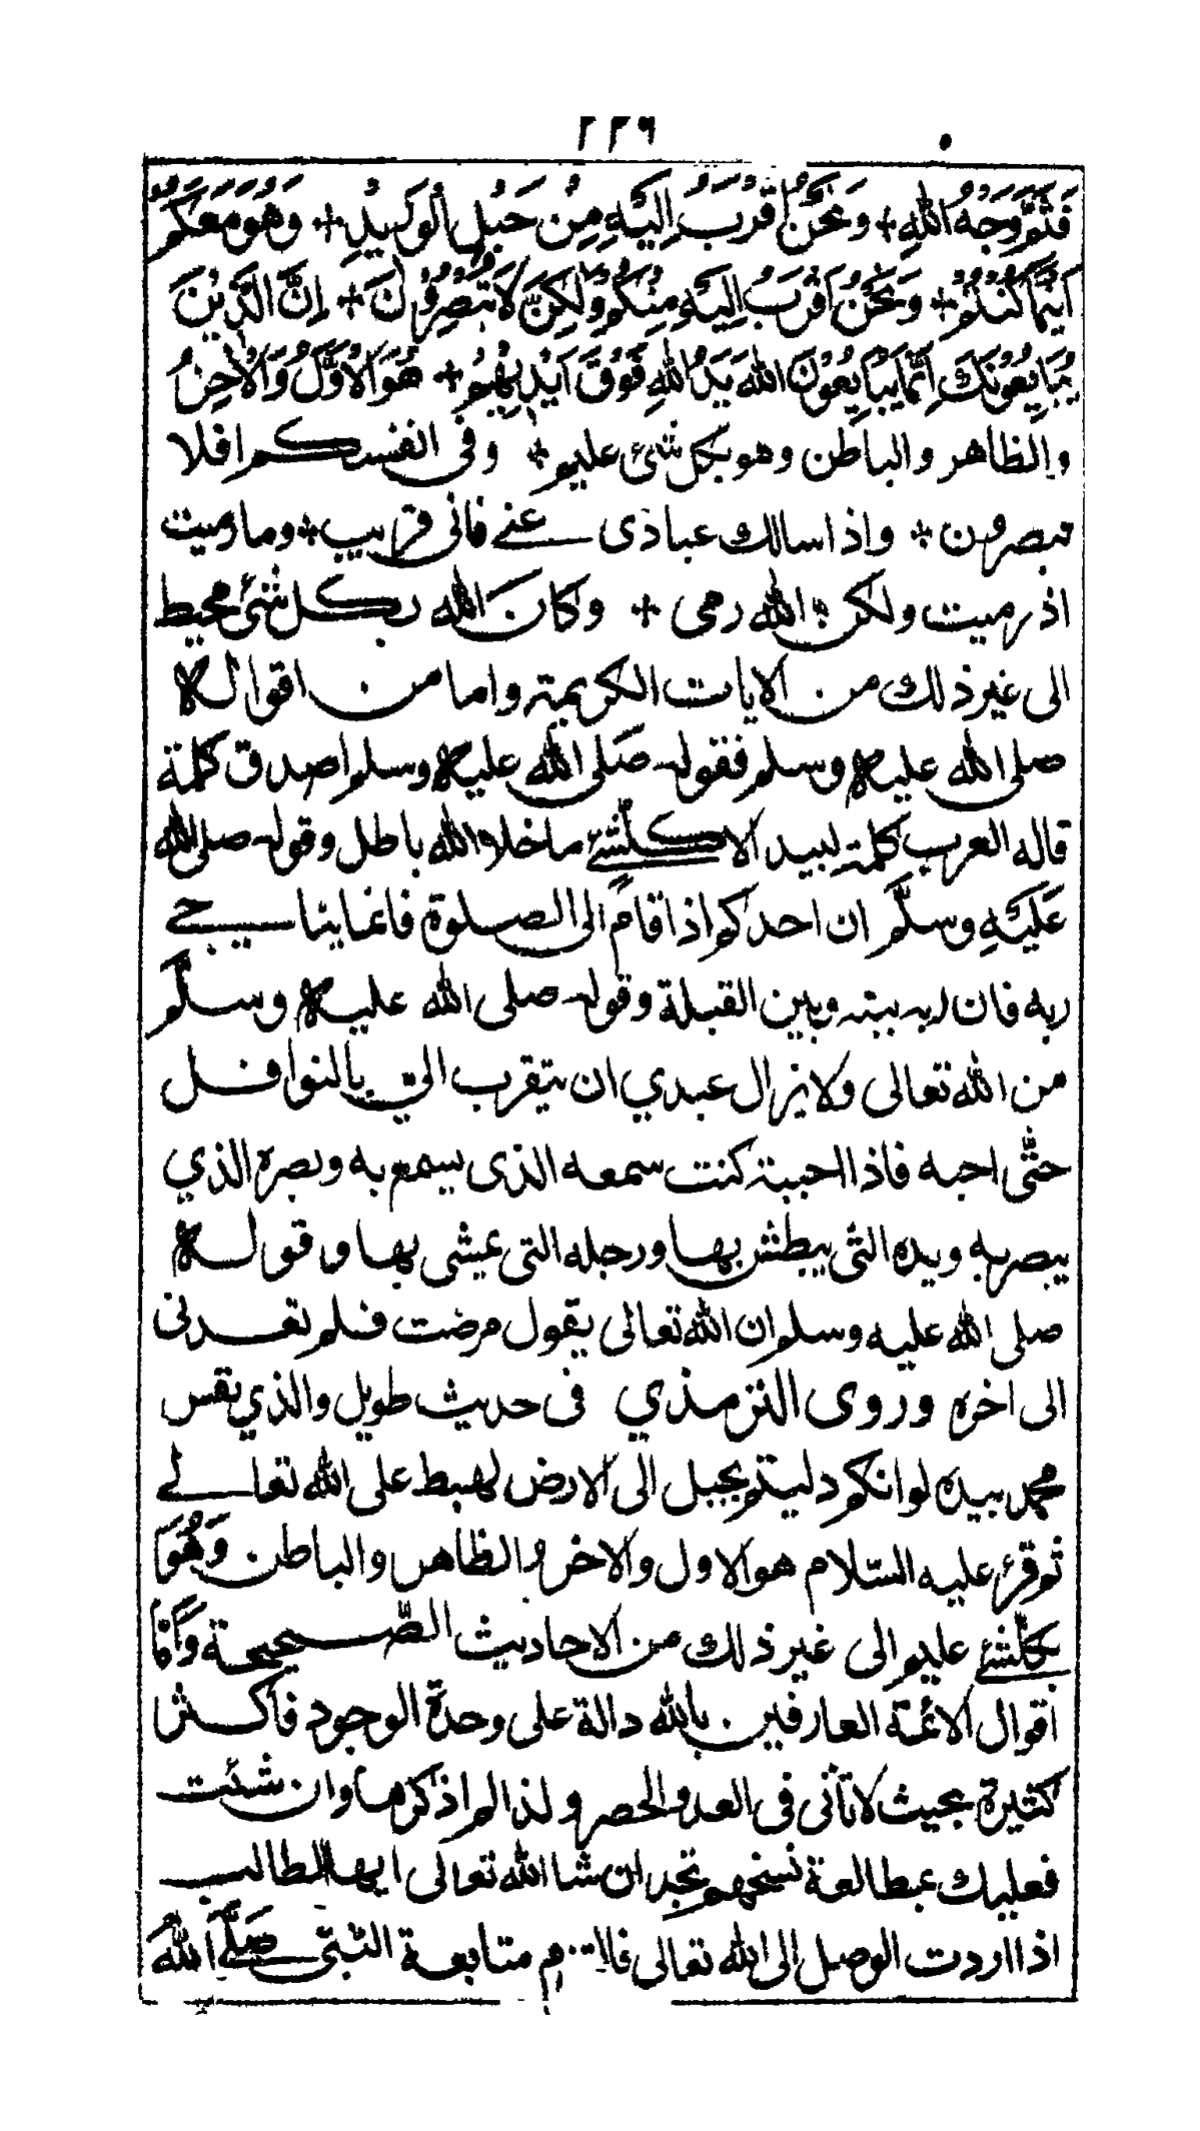 ٢٢٩
فَثَمَّ وَجْهُ اللّٰهِ + وَنَحْنُ اَقْرَبُ اِلَيْهِ مِنْ حَبْلِ الْوَرِيْدِ + وَهُوَ مَعَكُمْ
اَيْنَمَا كُنْتُمْ + وَنَحْنُ اَقْرَبُ اِلَيْهِ مِنْكُمْ وَلٰكِنْ لَا تُبْصِرُوْنَ + اِنَّ الَّذِيْنَ
يُبَايِعُوْنَكَ اِنَّمَا يُبَايِعُوْنَ اللّٰهَ يَدُ اللّٰهِ فَوْقَ اَيْدِيْهِمْ + هُوَ الْاَوَّلُ وَالْاٰخِرُ
والظاهر والباطن وهو بكل شئ عليم + وفى انفسكم افلا
تبصرون + واذا سالك عبادى عنے فانى قريب + وما رميت
اذ رميت ولكن الله رمى + وكان الله بكل شئ محيط
الى غير ذلك من الايات الكريمة واما من اقواله
صلى الله عليه وسلم فقوله صلى الله عليه وسلم اصدق كلمة
قاله العرب كلمة لبيد الا كلشئ ما خلا الله باطل وقوله صلى الله
عليه وسلم ان احدكم اذا قام الى الصلوة فانما يناجے
ربه فان ربه بينه وبين القبلة وقوله صلى الله عليه وسلم
من الله تعالى ولا يزال عبدي ان يتقرب الي بالنوافل
حتّى احبه فاذا احببته كنت سمعه الذى يسمع به وبصره الذي
يبصر به ويده التى يبطش بها ورجله التى يمشى بها وقوله
صلى الله عليه وسلم ان الله تعالى يقول مرضت فلم تعدنى
الى اخره وروى الترمذي فى حديث طويل والذي نفس
محمد بيده لو انكم دليتم بحبل الى الارض لهبط على الله تعالے
ثم قرء عليه السلام هو الاول والاخر والظاهر والباطن وَهُوَ
بكلشئ عليم الى غير ذلك من الاحاديث الصّحيحة وَاَمَّا
اقوال الائمة العارفين بالله دالة على وحدة الوجود فاكثر
كثيرة بحيث لا تأتى فى العد والحصر ولذا لم اذكرها وان شئت
فعليك بمطالعة نسخهم تجد ان شا الله تعالى ايها الطالب
اذا اردت الوصل الى الله تعالى فالتزم متابعة النبى صلى الله